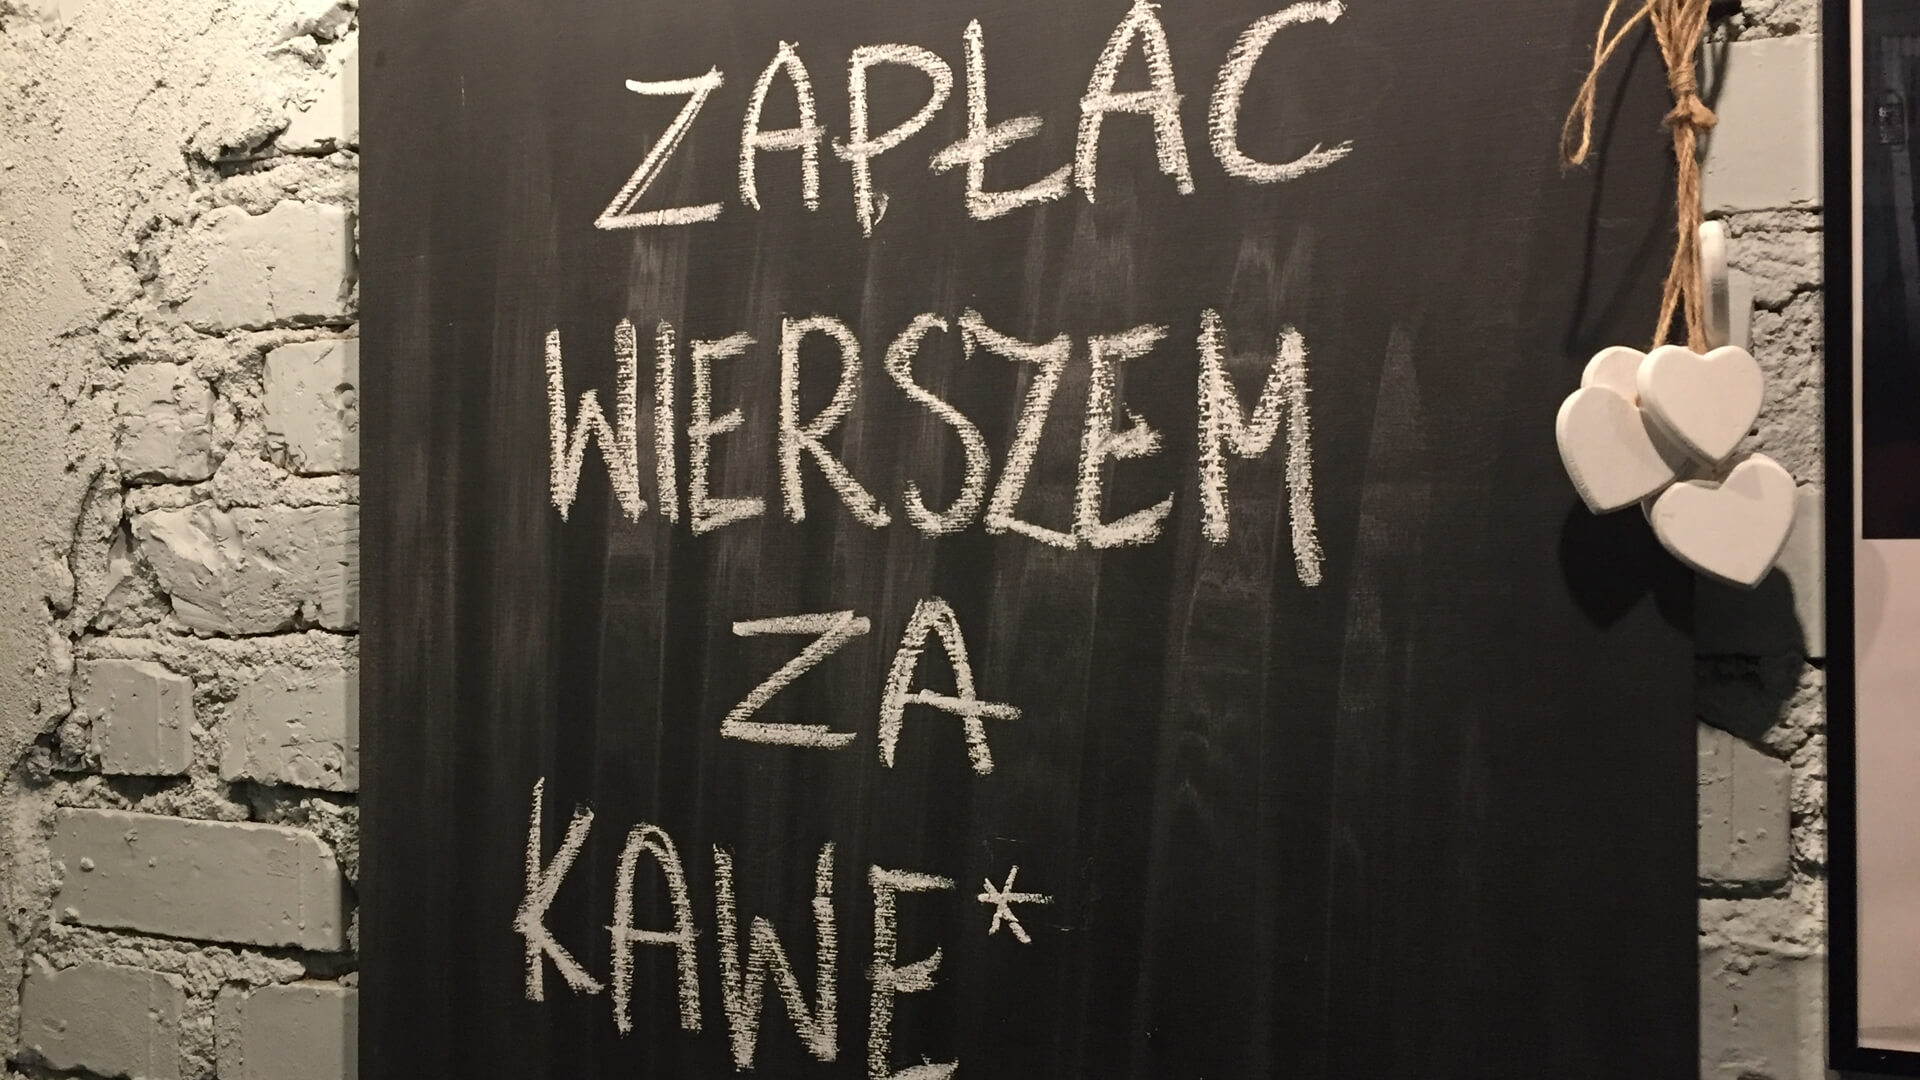 ZAPŁAC
WIERSZEM
ZA
KAWE*